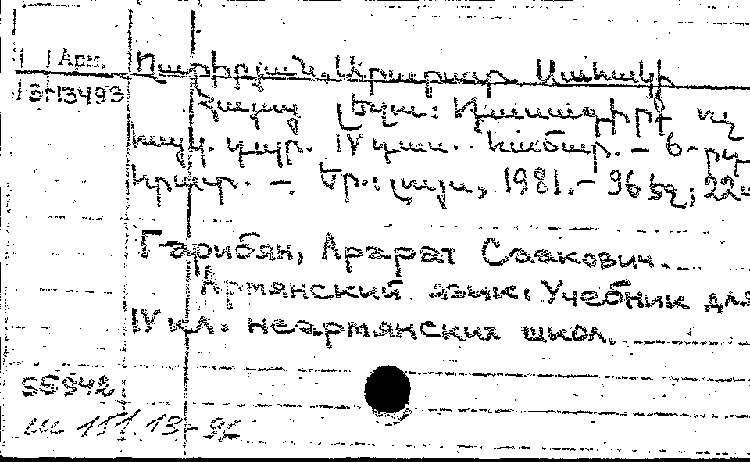 Арм.
Ղարիբյան, Արարատ Սահակի
Эг13493
Հայոց լեզու: Դասագիրք ոչ
հայկ. դպր. IV դաս. - 6-րդ
հրատ. - Եր.: Լույս, 1981.- 96 էջ; 22
Гарибян, Арарат Саакович.
Армянский язык. Учебник для
IV кл. неармянских школ.
55942
ш 151.13-96